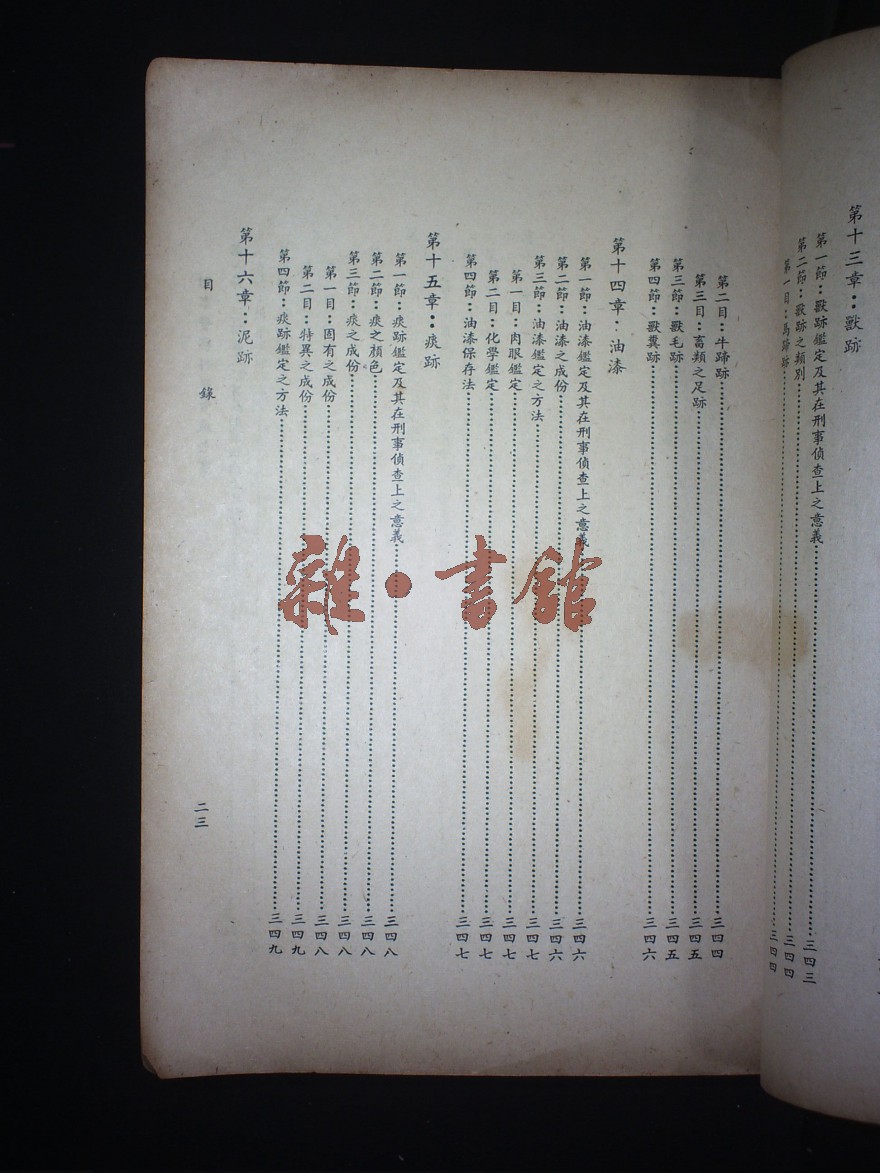 第十三章：獸跡
第一節：獸跡鑑定及其在刑事偵查上之意義……三四三
第二節：獸跡之類別……三四四
第一目：馬蹄跡……三四四
第二目：牛蹄跡……三四四
第三目：畜類之足跡……三四五
第三節：獸毛跡……三四五
第四節：獸糞跡……三四六
第十四章：油漆
第一節：油漆鑑定及其在刑事偵查上之意義……三四六
第二節：油漆之成份……三四六
第三節：油漆鑑定之方法……三四七
第一目：肉眼鑑定……三四七
第二目：化學鑑定……三四七
第四節：油漆保存法……三四七
第十五章：痰跡
第一節：痰跡鑑定及其在刑事偵查上之意義……三四八
第二節：痰之顏色……三四八
第三節：痰之成份……三四八
第一目：固有之成份……三四八
第二目：特異之成份……三四九
第四節：痰跡鑑定之方法……三四九
第十六章：泥跡
目錄
二三
雜·書館